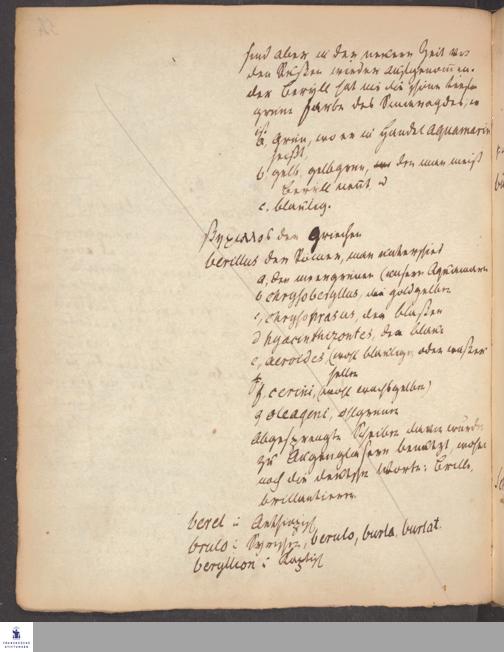 sind aber in der neuern Zeit von
den Russen wieder aufgenommen.
der Beryll hat nie die schöne
grüne Farbe des Smaragdes, er
ist
a. Grün, wo er in Handel Aquamarin
heißt,
b. gelb, gelbgrün, den man meist
Beryll nennt, u
c. blaulig.
βηριλλος der Griechen
berillus der Römer, man unterschied
a. den meergrünen (unsern Aquamarin
b chrysoberyllus, die goldgelben
c, chrysoprasus, den blaßen
d hyacinthizontes, den
e, aeroides, (wohl blaulig oder wasser
hellen
f, cerini, (wohl wachsgelben)
g oleageni, ölgrüne
Abgesprengte Scheiben davon wurden
zu Augengläsern benutzt, woher
noch die deutschen Worte: Brille,
brillantieren
berel :
brulo : Syrisch, berulo, burla, burlat.
beryllion :